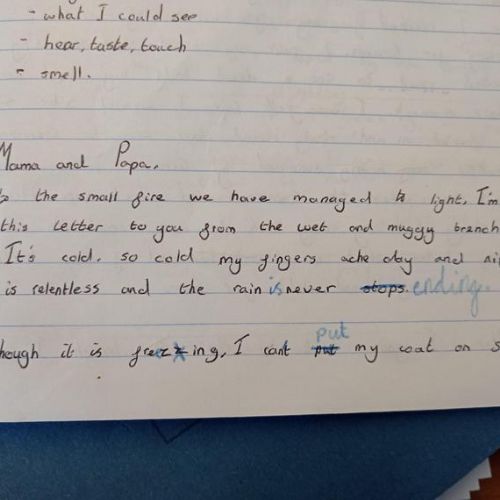 - what I could see
- hear, taste, touch
- smell.
Mama and Papa,
the small fire we have managed to light, I'm
this letter to you from the wet and muggy branch
It's cold. so cold my fingers ache day and
is relentless and the rain is never stops. ending.
put
hough it is freezing, I cant put my coat on